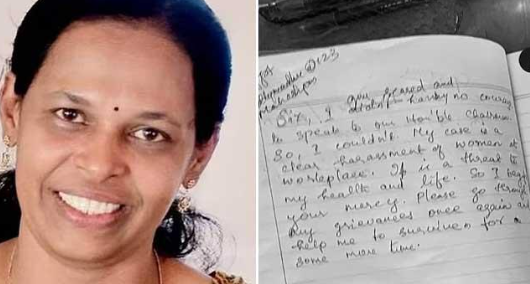 Sir, I you feared and
having no courage
to speak to our Hon'ble Chairman
So, I couldn't. My case is a
clear harassment of women at
workplace. It is a threat to
my health and life. So I beg
your mercy. Please go through
my grievances once again and
help me to survive for a
some more time.